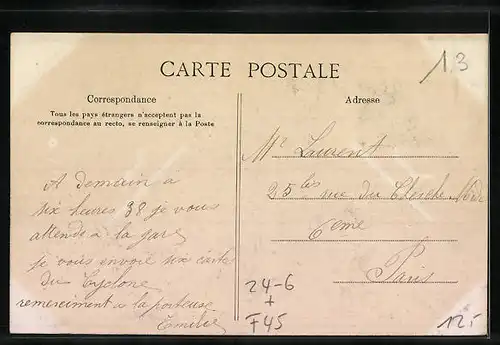 13
CARTE POSTALE
Correspondance
Tous les pays étrangers n'acceptent pas la
correspondance au recto, se renseigner à la Poste
A demain a
six heures 38 je vous
attends a la gare
je vous envoie six carte
du Cyclone
remerciment a la porteuse
Emilie
Adresse
Mr Laurent
25 bis rue du Cherche Midi
6eme
Paris
24-6
+
F45
12,-